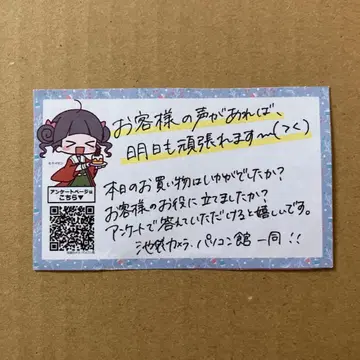 お客様の声があれば、
明日も頑張れます〜(>く)
本日のお買い物はいかがでしたか?
お客様のお役に立てましたか?
アンケートで答えていただけると嬉しいです。
池袋カメラ・パソコン館 一同!!
アンケートページは
こちら▼